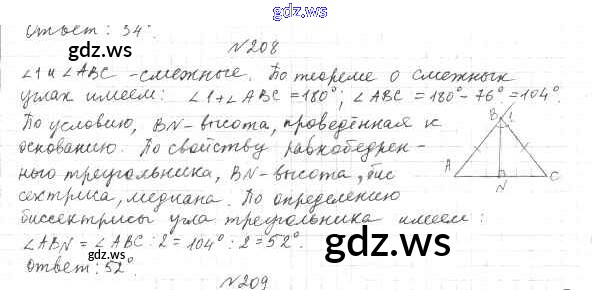 gdz.ws
Ответ: 34°.
gdz.ws
gdz.ws
N208
∠1 и ∠ABC - смежные. По теореме о смежных
углах имеем: ∠1+∠ABC=180°; ∠ABC=180°-76°=104°.
По условию, BN-высота, проведённая к
основанию. По свойству равнобедрен-
ного треугольника, BN-высота, бис
сектриса, медиана. По определению
биссектрисы угла треугольника имеем:
∠ABN=∠ABC:2=104°:2=52°.
Ответ: 52°.
B 1
A N C
gdz.ws
gdz.ws
N209